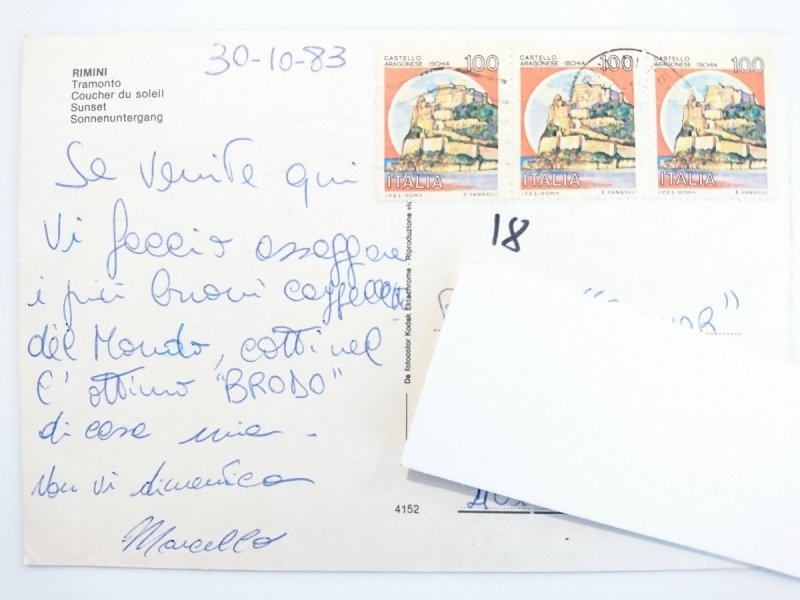 RIMINI
Tramonto
Coucher du soleil
Sunset
Sonnenuntergang
30-10-83
CASTELLO
ARAGONESE · ISCHIA 100
ITALIA
I.P.Z.S.-ROMA E. VANGELLI
CASTELLO
ARAGONESE · ISCHIA 100
ITALIA
I.P.Z.S.-ROMA E. VANGELLI
CASTELLO
ARAGONESE · ISCHIA 100
ITALIA
I.P.Z.S.-ROMA E. VANGELLI
Se venite qui
Vi faccio assaggiare
i più buoni cappelletti
del Mondo, cotti nel
l'ottimo "BRODO"
di casa mia -
Non vi dimentica
Marcello
De fotocolor Kodak Ektachrome - Riproduzione vie
4152
18